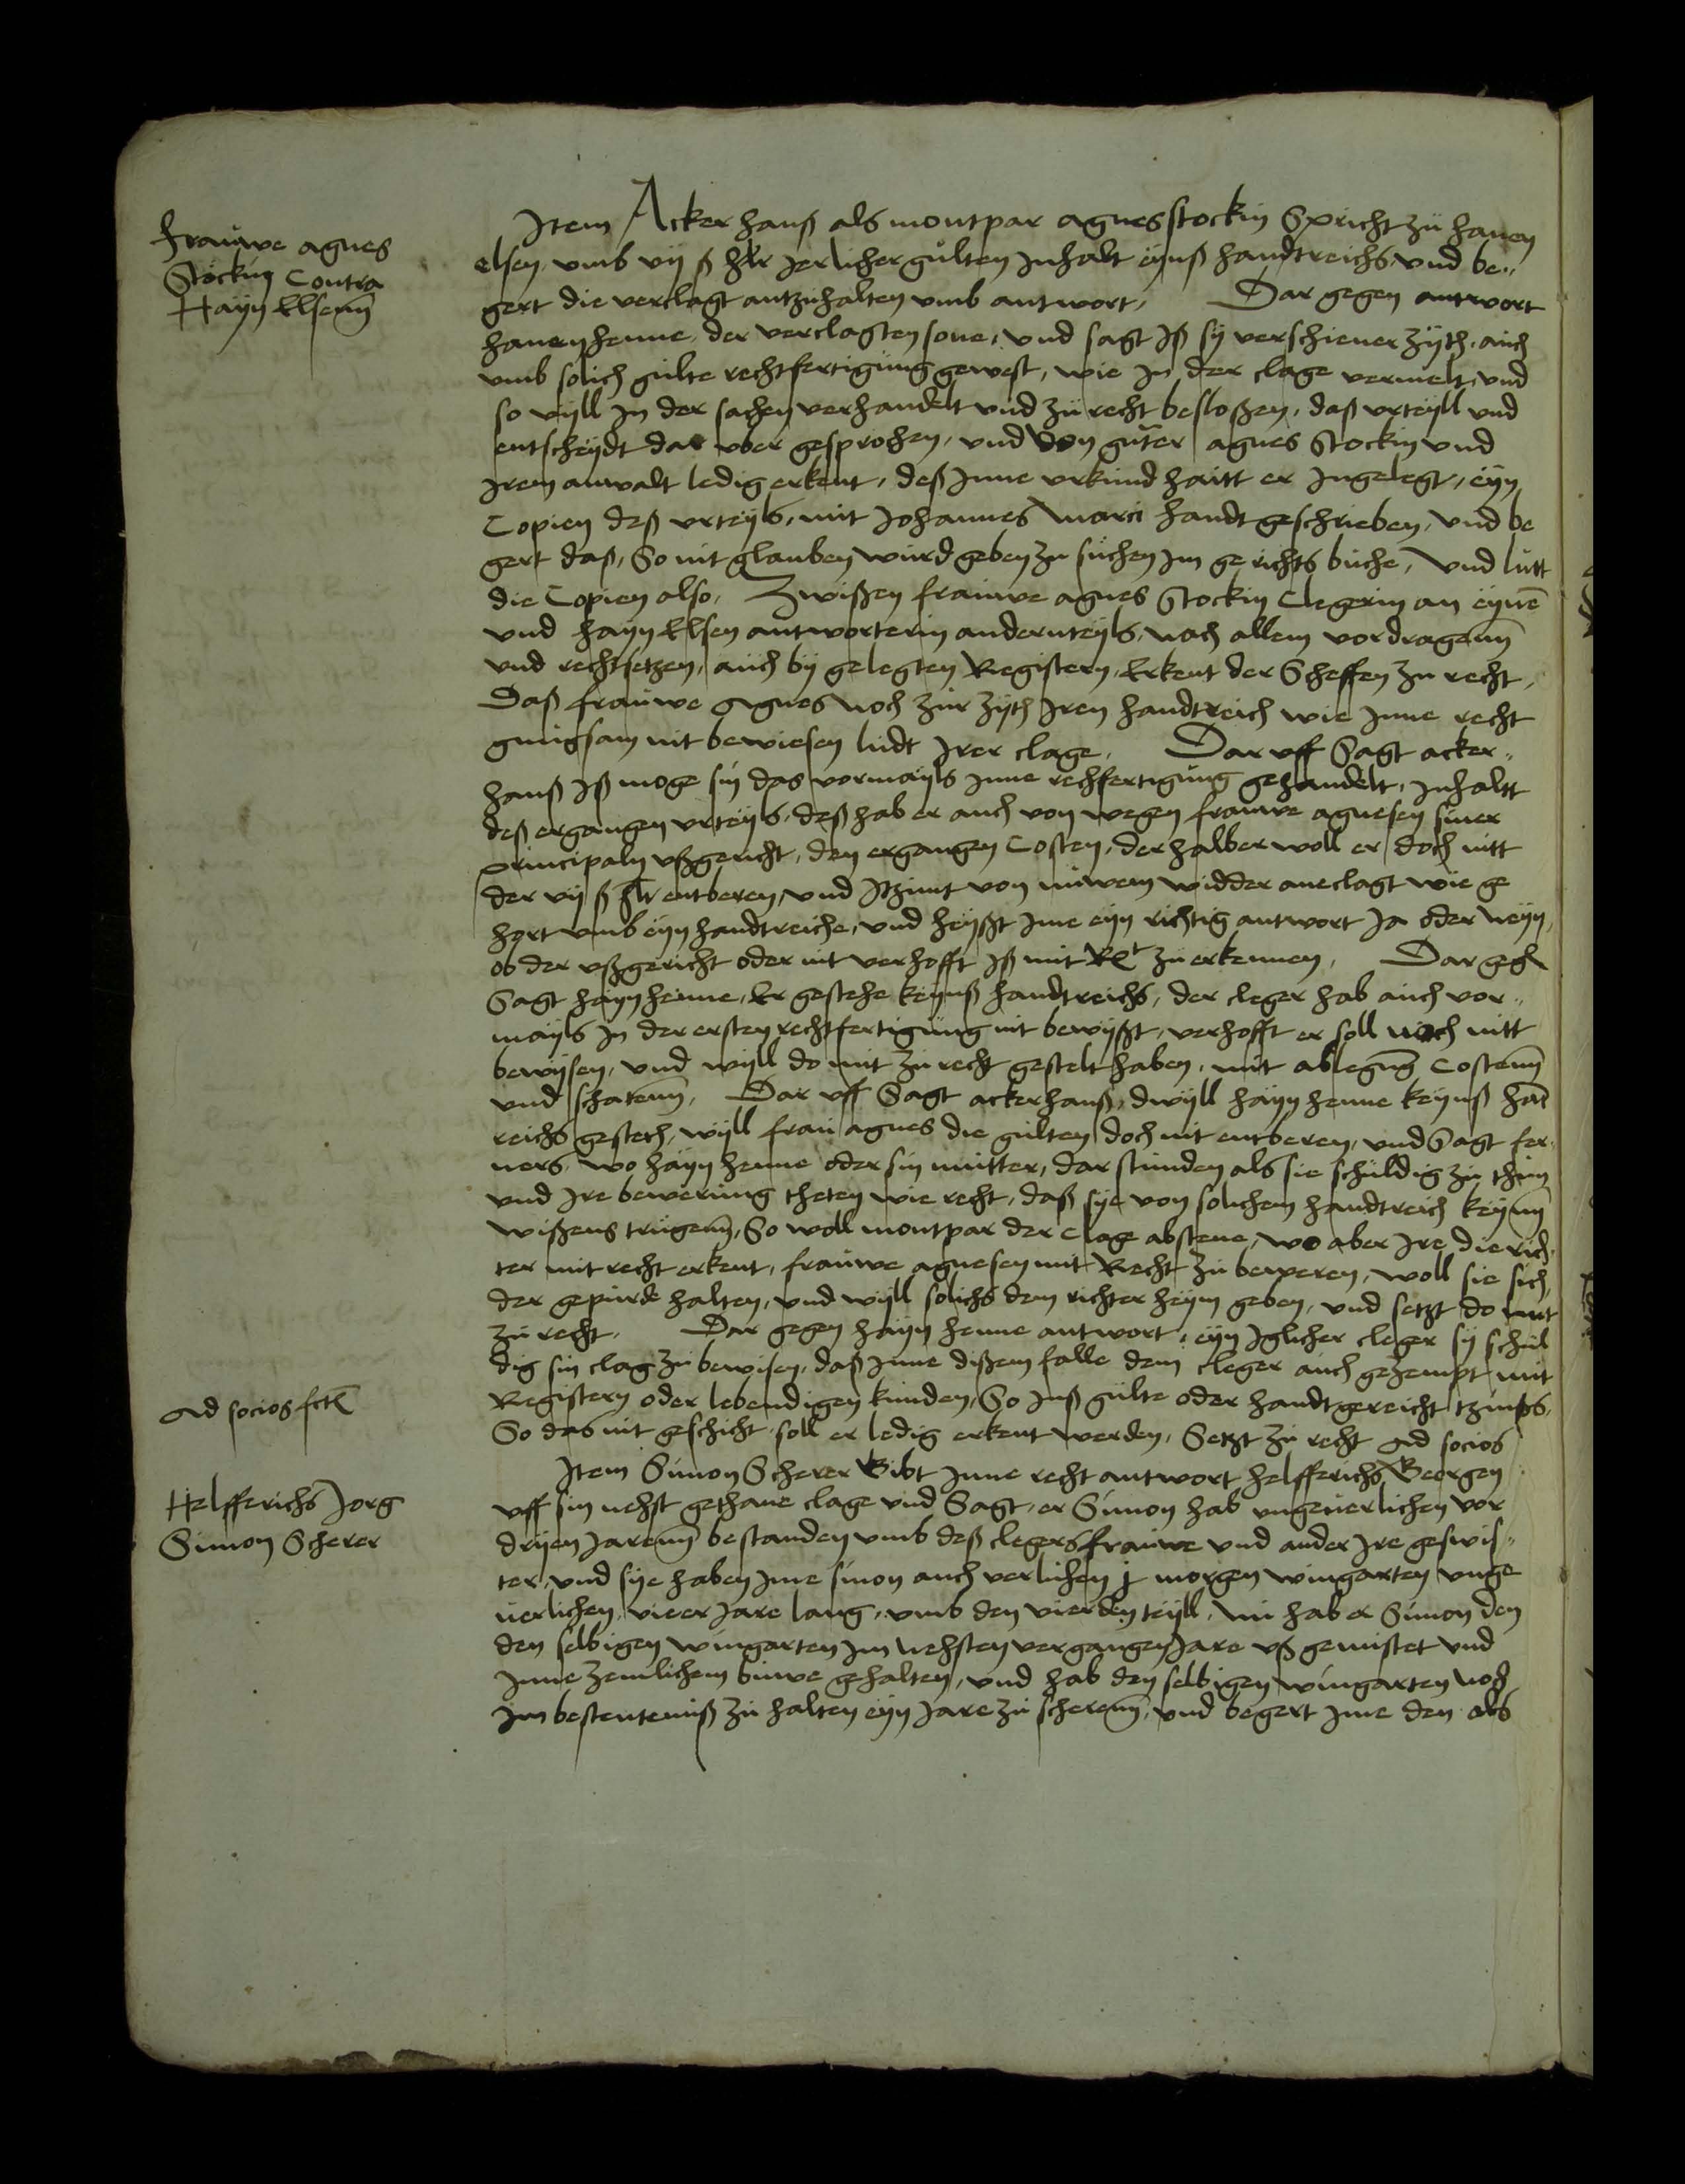 Frauwe agnes
Stockin Contra
Hayn Elsenn
Item Acker hanß als montpar agnes stockin Spricht zu hanen
elsen, umb vij ß hlr jerlicher gulten Inhalt eynß handtreichs, und be„
gert die verclagt antzuhalten umb antwort, Dar gegen antwort
hanen henne, der verclagten sone, und sagt Iß sy verschiener zyth, auch
umb solich gulte rechtfertigung gewest, wie In der clage vermelt, und
so vyll In der sachen verhandelt und zu recht besloßen, daß urteyll und
entscheydt dar uber gesprochen, und von guter agnes Stockin und
Irem anwalt ledig erkent, deß Inne urkund haitt er Ingelegt, eyn
Copien deß urteyls, mit Johannes Marci handt geschrieben, und be
gert daß, So nit glauben wurd geben zu suchen Im gerichts buche, und lutt
die Copien also, Zwißen frauwe agnes Stockin Clegerin an eynē
und hayn Elsen antworterin anderteyls, nach allem vordragenn
und rechtsetzen, auch by gelegten Registern, Erkent der Scheffen zu recht,
Daß frauwe Agnes noch zur zyth Iren handtreich wie Inne recht
gnugsam nit bewiesen ludt Irer clage, Dar uff Sagt acker„
hanß Iß moge sin das vormayls Inne rechfertigung gehandelt, Inhaltt
deß ergangen urteyls, deß hab er auch von wegen frauwe agnesen siner
principaln ußgericht, den ergangen Costen, der halber woll er doch nitt
der vij ß hlr entberen, und Itzunt von nuwem widder aneclagt wie ge
hort umb eyn handtreiche, und heyßt Ime eyn richtig antwort Ja oder neyn,
ob der ußgericht oder nit verhofft Iß mit Rēt zu erkennen, Dar gegē
Sagt hayn henne, Er gestehe keynß handtreichs, der cleger hab auch vor„
mayls In der ersten rechtfertigung nit bewyßt, verhofft er soll noch nitt
bewysen, und wyll do mit zu recht gestelt haben, mit ablegūg Costenn
und schatenn, Dar uff Sagt ackerhanß, dwyll hayn henne keynß hāt
reichs gesteth, wyll frau agnes die gulten doch nit entberen, und Sagt fer„
ners, wo hayn henne oder sin mutter, dar stunden als sie schuldig zu thun
und Ire bewerung theten wie recht, daß sye von solichem handtreich keynn
wißens trugenn, So woll montpar der clage abstene, wo aber Ire die rich„
ter mit recht erkent, frauwe agnesen mit Recht zu beweren, woll sie sich
der gepurde halten, und wyll solichs dem richter heym geben, und setzt do mit
zu recht, Dar gegen hayn henne antwort, eyn Iglicher cleger sy schul
dig sin clag zu bewisen, daß Inne dißem falle dem cleger auch gezempt mit
Registern oder lebendigen kunden, So Inß gulte oder handtgereicht tzinßs,
So das nit geschicht soll er ledig erkent werden, Setzt zu recht ad socios
ad socios
Helfferichs Jorg
Simon Scherer
Item Simon Scherer Gibt Inne recht antwort helfferichs Georgen
uff sin nehst gethane clage und Sagt, er Simon hab ungeuerlichen vor
dryen Jarenn bestanden umb deß clegers frauwe und ander Ire geswis„
ter, und sye haben Ime simon auch verlichen j morgen wingarten unge
uerlichen, vieer Jare lang, umb den vierden teyll, nu hab er Simon den
den selbigen wingarten Im nehsten vergangen Jare uß gemistet und
Inne zemlichem buwe gehalten, und hab den selbigen wingarten noch
Im bestenteniß zu halten eyn Jare zu scherenn, und begert Ime den als